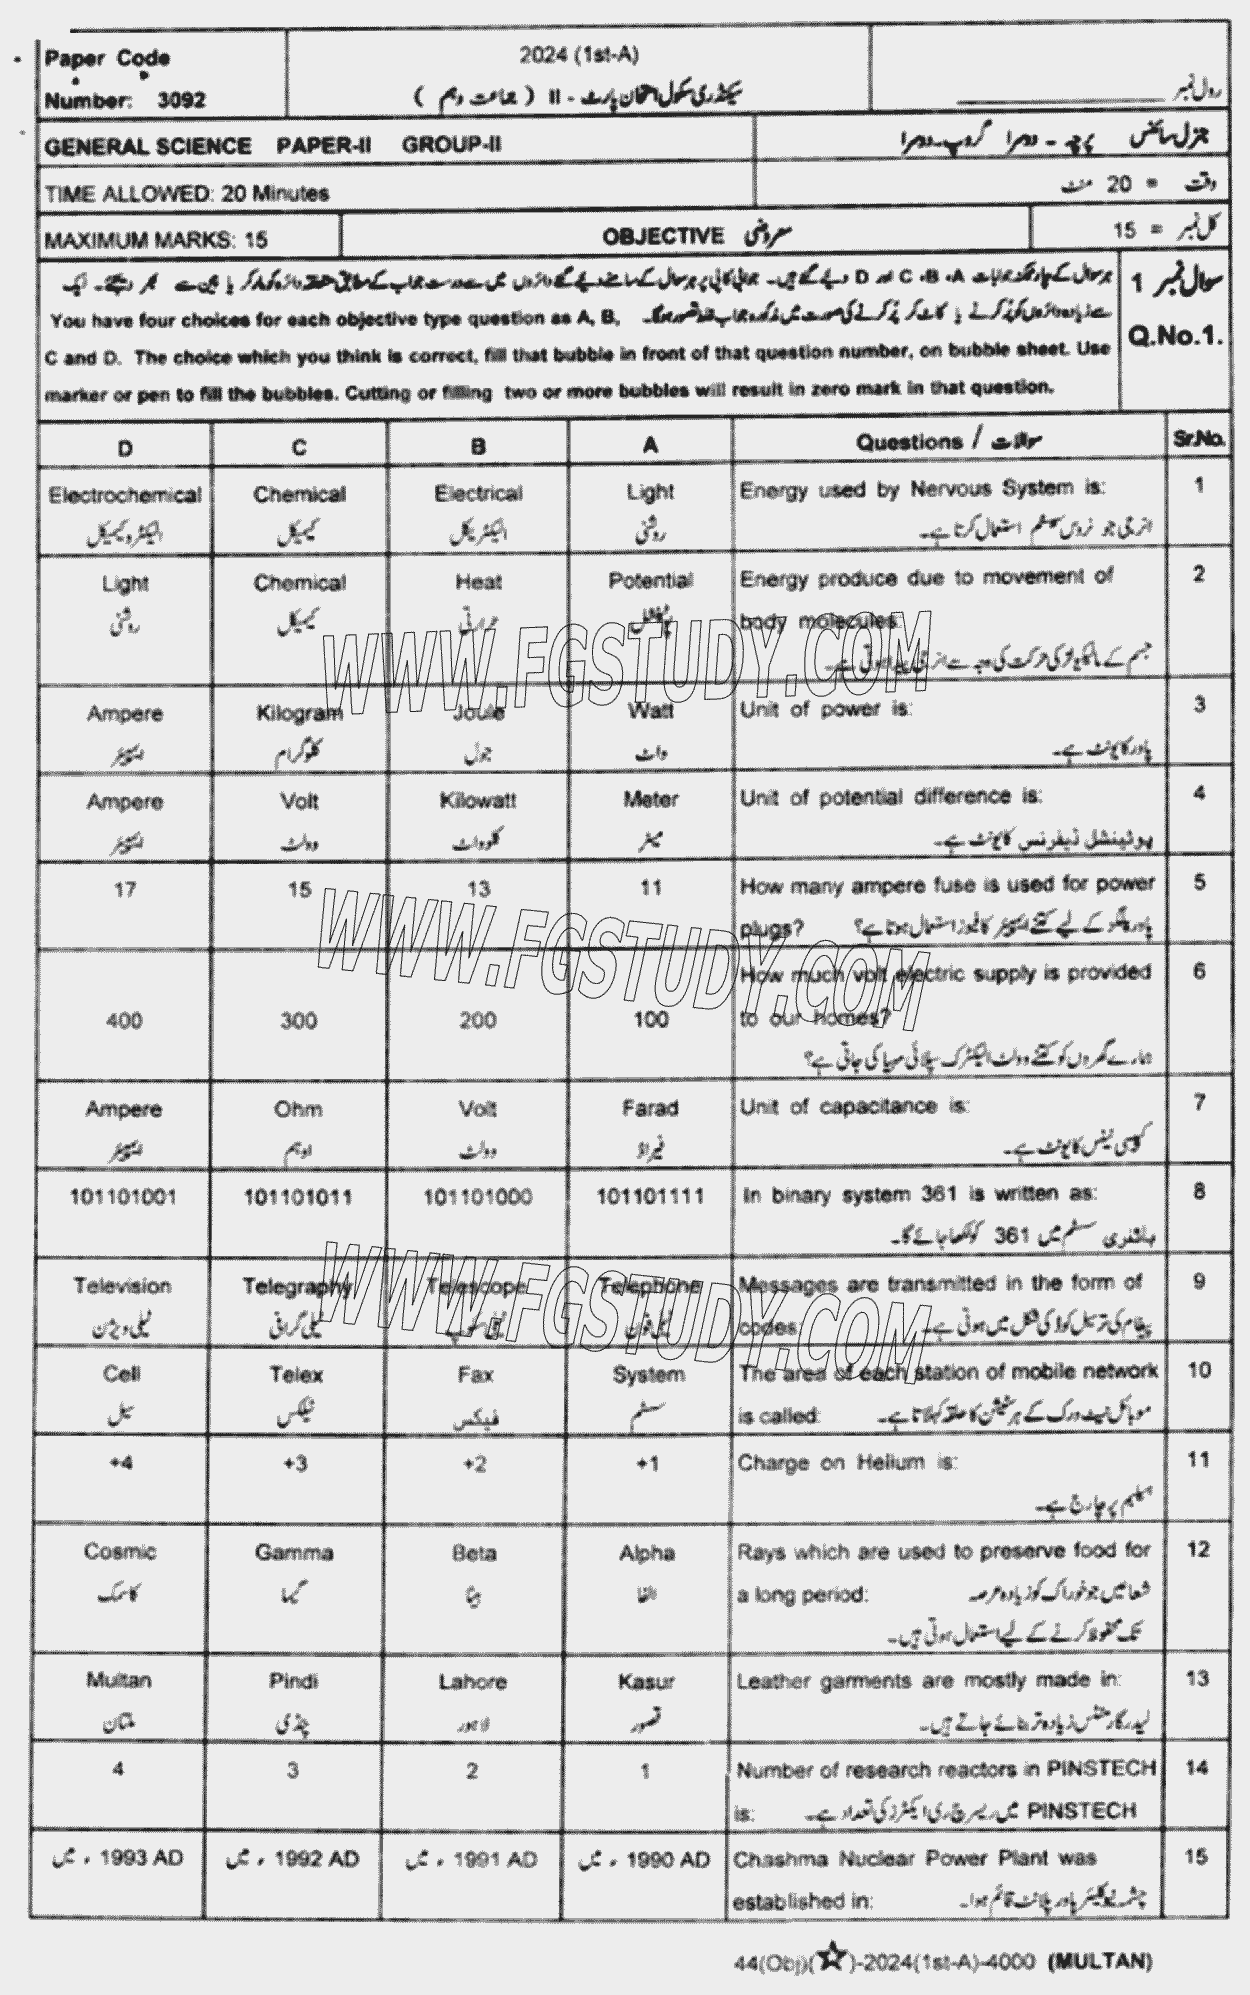 Paper Code
Number: 3092
2024 (1st-A)
سیکنڈری سکول امتحان پارٹ - II ( جماعت دہم )
رول نمبر
GENERAL SCIENCE PAPER-II GROUP-II
جنرل سائنس پرچہ - دوسرا گروپ - دوسرا
TIME ALLOWED: 20 Minutes
وقت = 20 منٹ
MAXIMUM MARKS: 15
OBJECTIVE معروضی
کل نمبر = 15
سوال نمبر 1
Q.No.1.
ہر سوال کے چار ممکنہ جوابات A، B، C اور D دیئے گئے ہیں۔ جوابی کاپی پر ہر سوال کے سامنے دیئے گئے دائروں میں سے درست جواب کے مطابق متعلقہ دائرہ کو مارکر یا پین سے بھر دیجئے۔ ایک
سے زیادہ دائروں کو پُر کرنے یا کاٹ کر پُر کرنے کی صورت میں مذکورہ جواب غلط تصور ہوگا۔ You have four choices for each objective type question as A, B,
C and D. The choice which you think is correct, fill that bubble in front of that question number, on bubble sheet. Use
marker or pen to fill the bubbles. Cutting or filling two or more bubbles will result in zero mark in that question.
D C B A Questions / سوالات Sr.No.
Electrochemical Chemical Electrical Light Energy used by Nervous System is: 1
الیکٹروکیمیکل کیمیکل الیکٹریکل روشنی انرجی جو نروس سسٹم استعمال کرتا ہے۔
Light Chemical Heat Potential Energy produce due to movement of 2
body molecules:
روشنی کیمیکل حرارتی پوٹینشل
جسم کے مالیکیولز کی حرکت کی وجہ سے انرجی پیدا ہوتی ہے۔
Ampere Kilogram Joule Watt Unit of power is: 3
ایمپیئر کلوگرام جول واٹ پاور کا یونٹ ہے۔
Ampere Volt Kilowatt Meter Unit of potential difference is: 4
ایمپیئر وولٹ کلوواٹ میٹر پوٹینشل ڈیفرنس کا یونٹ ہے۔
17 15 13 11 How many ampere fuse is used for power 5
plugs? پاور پلگز کے لیے کتنے ایمپیئر کا فیوز استعمال ہوتا ہے؟
How much volt electric supply is provided 6
400 300 200 100 to our homes?
ہمارے گھروں کو کتنے وولٹ الیکٹرک سپلائی مہیا کی جاتی ہے؟
Ampere Ohm Volt Farad Unit of capacitance is: 7
ایمپیئر اوہم وولٹ فیراڈ کپیسی ٹینس کا یونٹ ہے۔
101101001 101101011 101101000 101101111 In binary system 361 is written as: 8
بائنری سسٹم میں 361 کو لکھا جائے گا۔
Television Telegraphy Telescope Telephone Messages are transmitted in the form of 9
ٹیلی ویژن ٹیلی گرافی ٹیلی سکوپ ٹیلی فون codes: پیغام کی ترسیل کوڈ کی شکل میں ہوتی ہے۔
Cell Telex Fax System The area of each station of mobile network 10
سیل ٹیلیکس فیکس سسٹم is called: موبائل نیٹ ورک کے ہر سٹیشن کا حلقہ کہلاتا ہے۔
+4 +3 +2 +1 Charge on Helium is: 11
ہیلیم پر چارج ہے۔
Cosmic Gamma Beta Alpha Rays which are used to preserve food for 12
کاسمک گیما بیٹا الفا a long period: شعاعیں جو خوراک کو زیادہ عرصہ
تک محفوظ کرنے کے لیے استعمال ہوتی ہیں۔
Multan Pindi Lahore Kasur Leather garments are mostly made in: 13
ملتان پنڈی لاہور قصور لیدر گارمنٹس زیادہ تر بنائے جاتے ہیں۔
4 3 2 1 Number of research reactors in PINSTECH 14
is: PINSTECH میں ریسرچ ری ایکٹرز کی تعداد ہے۔
1993 AD ، میں 1992 AD ، میں 1991 AD ، میں 1990 AD ، میں Chashma Nuclear Power Plant was 15
established in: چشمہ نیوکلیئر پاور پلانٹ قائم ہوا۔
44(Obj)(☆)-2024(1st-A)-4000 (MULTAN)
WWW.FGSTUDY.COM
WWW.FGSTUDY.COM
WWW.FGSTUDY.COM